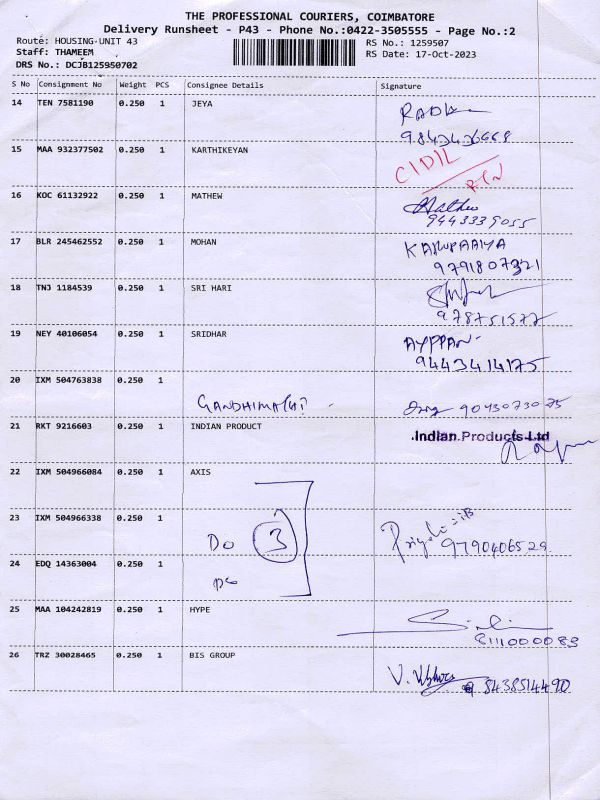 THE PROFESSIONAL COURIERS, COIMBATORE
Delivery Runsheet - P43 - Phone No.:0422-3505555 - Page No.:2
Route: HOUSING UNIT 43 RS No.: 1259507
Staff: THAMEEM RS Date: 17-Oct-2023
DRS No.: DCJB125950702
S No Consignment No Weight PCS Consignee Details Signature
14 TEN 7581190 0.250 1 JEYA
15 MAA 932377502 0.250 1 KARTHIKEYAN
16 KOC 61132922 0.250 1 MATHEW Mathew
9443339055
17 BLR 245462552 0.250 1 MOHAN
9791807321
18 TNJ 1184539 0.250 1 SRI HARI
19 NEY 40106054 0.250 1 SRIDHAR AYPPAN
9443414175
20 IXM 504763838 0.250 1
GANDHIMATHI 9043073075
21 RKT 9216603 0.250 1 INDIAN PRODUCT .Indian Products Ltd
22 IXM 504966084 0.250 1 AXIS
23 IXM 504966338 0.250 1
Do 3 9790406529
24 EDQ 14363004 0.250 1
Do
25 MAA 104242819 0.250 1 HYPE
8111000089
26 TRZ 30028465 0.250 1 BIS GROUP
8438514490